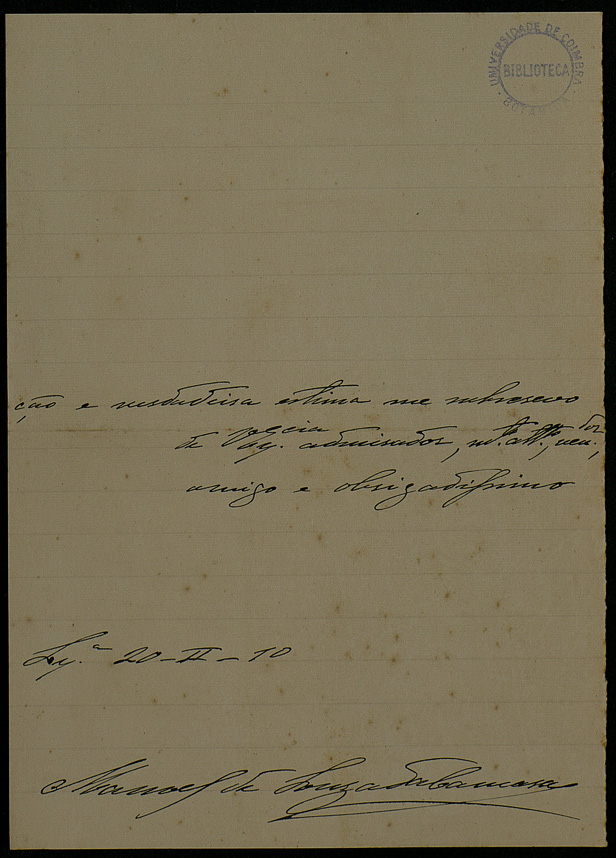 UNIVERSIDADE DE COIMBRA
BIBLIOTECA
BOTANICA
ção e verdadeira estima me subscrevo
de V. Ex.cia admirador, m.to att.o, ven.dor,
amigo e obrigadissimo
Lx.a 20-II-10
Manoel de Souza da Camara